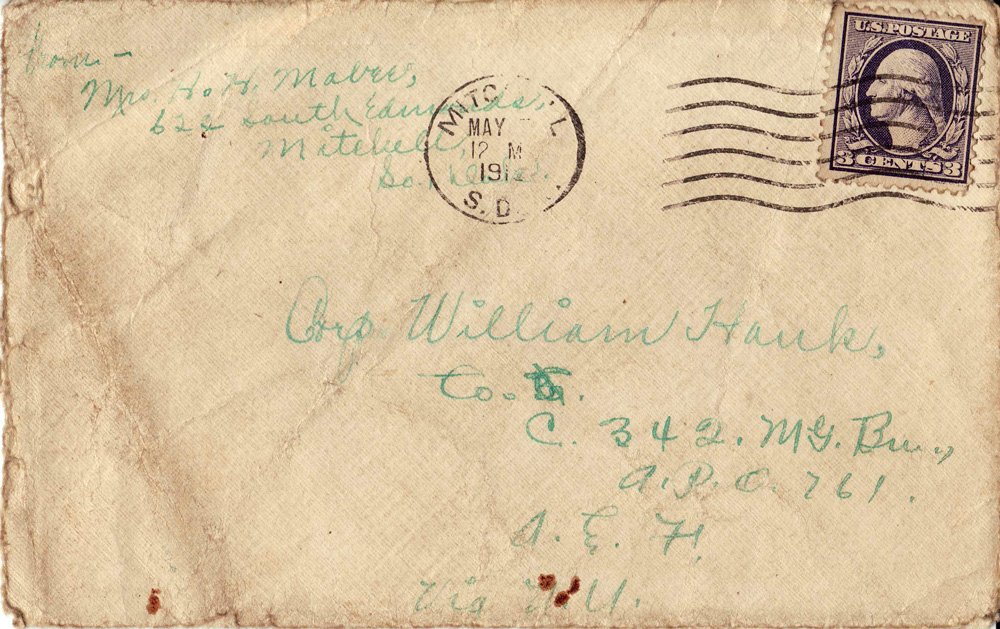 from –
Mrs. H. H. Mabee,
622 South Edmunds,
Mitchell,
So.
MITC L L
MAY
12 M
191
S.D.
U.S. POSTAGE
3 CENTS 3
Corp William Hauk,
Co.
C. 342. M.G. Bn.,
A.P.O. 761.
A. E. F.
Via N.Y.